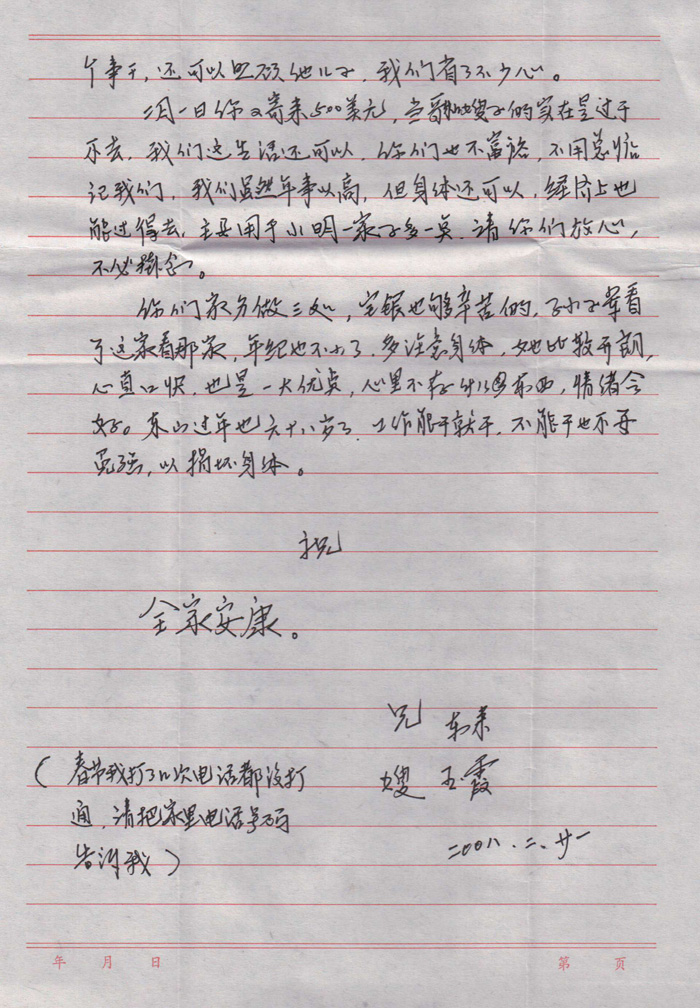 个事干，还可以照顾他儿子，我们省了不少心。
二月一日你又寄来500美元，当哥和嫂子的实在是过于
乐去，我们这生活还可以，你们也不富裕，不用总惦
记我们，我们虽然年事以高，但身体还可以，经济上也
能过得去，主要用于小明一家子多一点，请你们放心，
不必掛念。
你们家分做三处，宝银也够辛苦的，孙子辈看
了这家看那家，年纪也不小了，多注意身体，她比较开朗，
心直口快，也是一大优点，心里不存东西，情绪会
好。东山过年也六十八岁了，工作能干就干，不能干也不再
勉强，以损坏身体。
祝
全家安康。
兄 东来
嫂 玉霞
二00八.二.廿一
（春节我打了几次电话都没打
通，请把家里电话号码
告诉我）
年 月 日 第 页